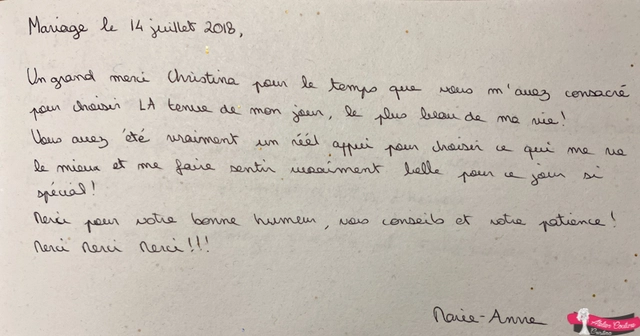 Mariage le 14 juillet 2018,
Un grand merci Christina pour le temps que vous m'avez consacré
pour choisir LA tenue de mon jour, le plus beau de ma vie!
Vous avez été vraiment un réel appui pour choisir ce qui me va
le mieux et me faire sentir vraiment belle pour ce jour si
spécial!
Merci pour votre bonne humeur, vos conseils et votre patience!
Merci Merci Merci!!!
Marie-Anne